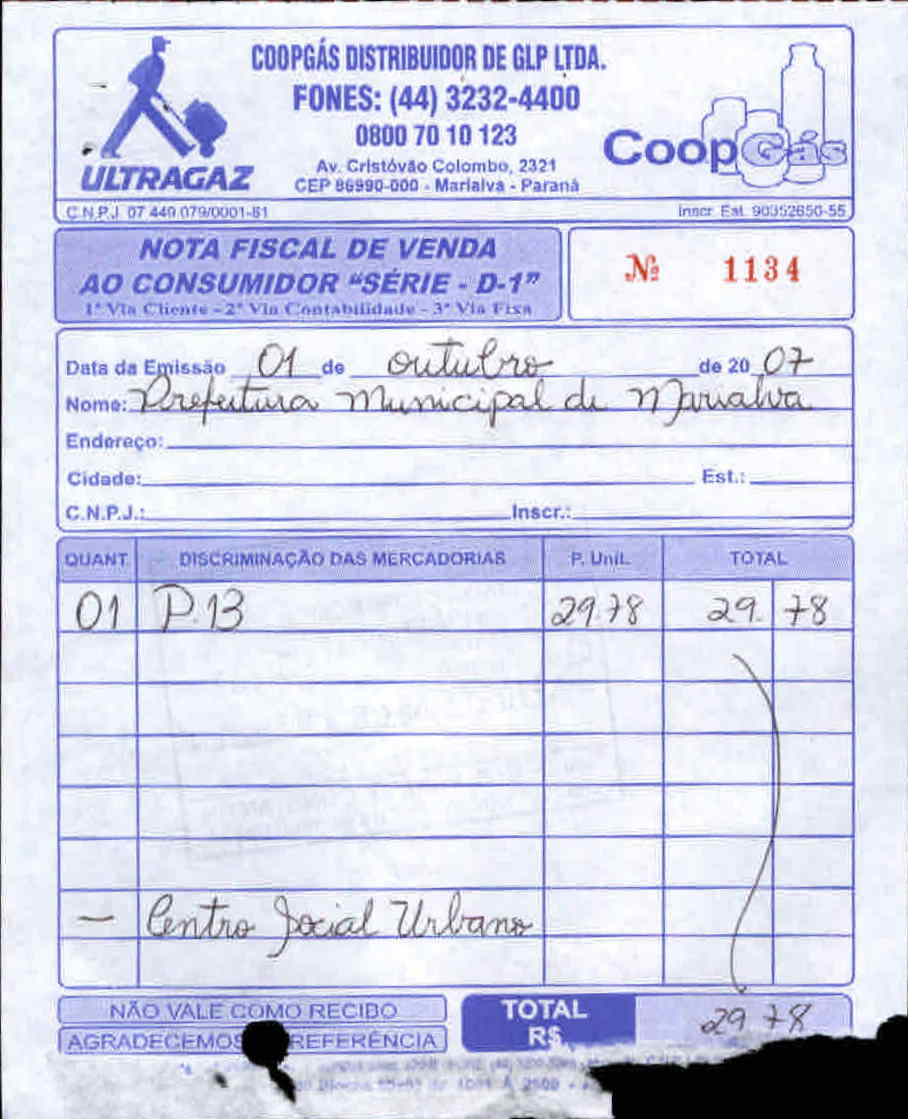 COOPGÁS DISTRIBUIDOR DE GLP LTDA.
FONES: (44) 3232-4400
0800 70 10 123
Av. Cristóvão Colombo, 2321
CEP 86990-000 - Marialva - Paraná
ULTRAGAZ
CoopGás
C.N.P.J. 07.449.079/0001-61 Inscr. Est. 90352650-55
NOTA FISCAL DE VENDA
AO CONSUMIDOR "SÉRIE - D-1"
1ª Via Cliente - 2ª Via Contabilidade - 3ª Via Fixa
Nº 1134
Data da Emissão 01 de outubro de 20 07
Nome: Prefeitura Municipal de Marialva
Endereço:
Cidade: Est.:
C.N.P.J.: Inscr.:
QUANT. DISCRIMINAÇÃO DAS MERCADORIAS P. Unit. TOTAL
01 P.13 29.78 29. 78
— Centro Social Urbano
NÃO VALE COMO RECIBO
TOTAL R$ 29 78
AGRADECEMOS REFERÊNCIA